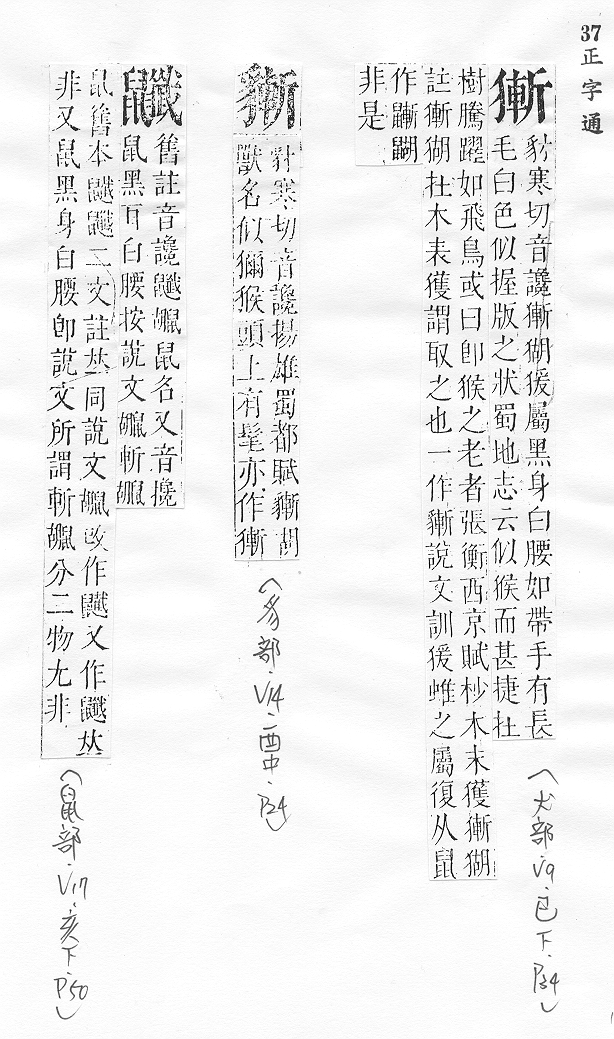 37 正字通
獑
豺寒切音讒獑猢猨屬黑身白腰如帶手有長
毛白色似握版之狀蜀地志云似猴而甚捷在
樹騰躍如飛鳥或曰卽猴之老者張衡西京賦杪木末獲獑猢
註獑猢在木表獲謂取之也一作䝋說文訓猨蜼之屬復从鼠
作䶫鼩
非是
豺寒切音讒揚雄蜀都賦
獸名似獼猴頭上有髦亦作獑
(豸部·V14·酉中·P24)
舊註音讒
鼠名又音攙
鼠黑耳白腰按說文
鼠舊本
二文註𠀤同說文
改作
又作
𠀤
非又鼠黑身白腰卽說文所謂斬
分二物尤非
(犬部·V9·巳下·P34)
(鼠部·V17·亥下·P50)